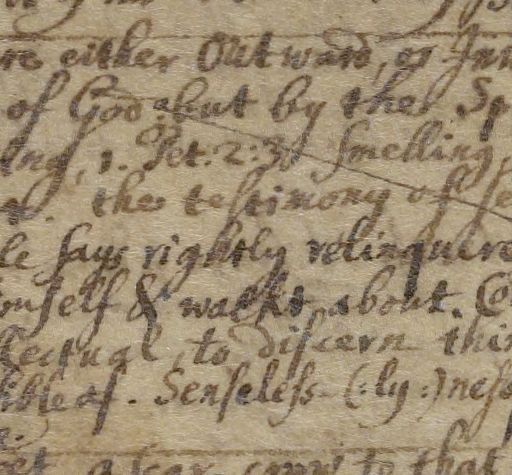 re either Outward, or Inn
of God but by the Sp
ing, 1. Pet. 2:3. smelling,
the testimony of se
le says rightly relinquere
mself & walks about. Co
lectual, to discern thin
ible as. Senseless-(:ly:)ness
to that